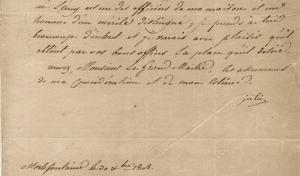 M. Lamy est un des officiers de ma maison et un
homme d'un mérite distingué; je prends à lui
beaucoup d'intérêt et je verrais avec plaisir qu'il
obtint par vos bons offices la place qu'il désire.
recevez, Monsieur Le Grand Maître, les assurances
de ma Considération et de mon Estime.
julie
Mortefontaine le 30 8bre 1808.